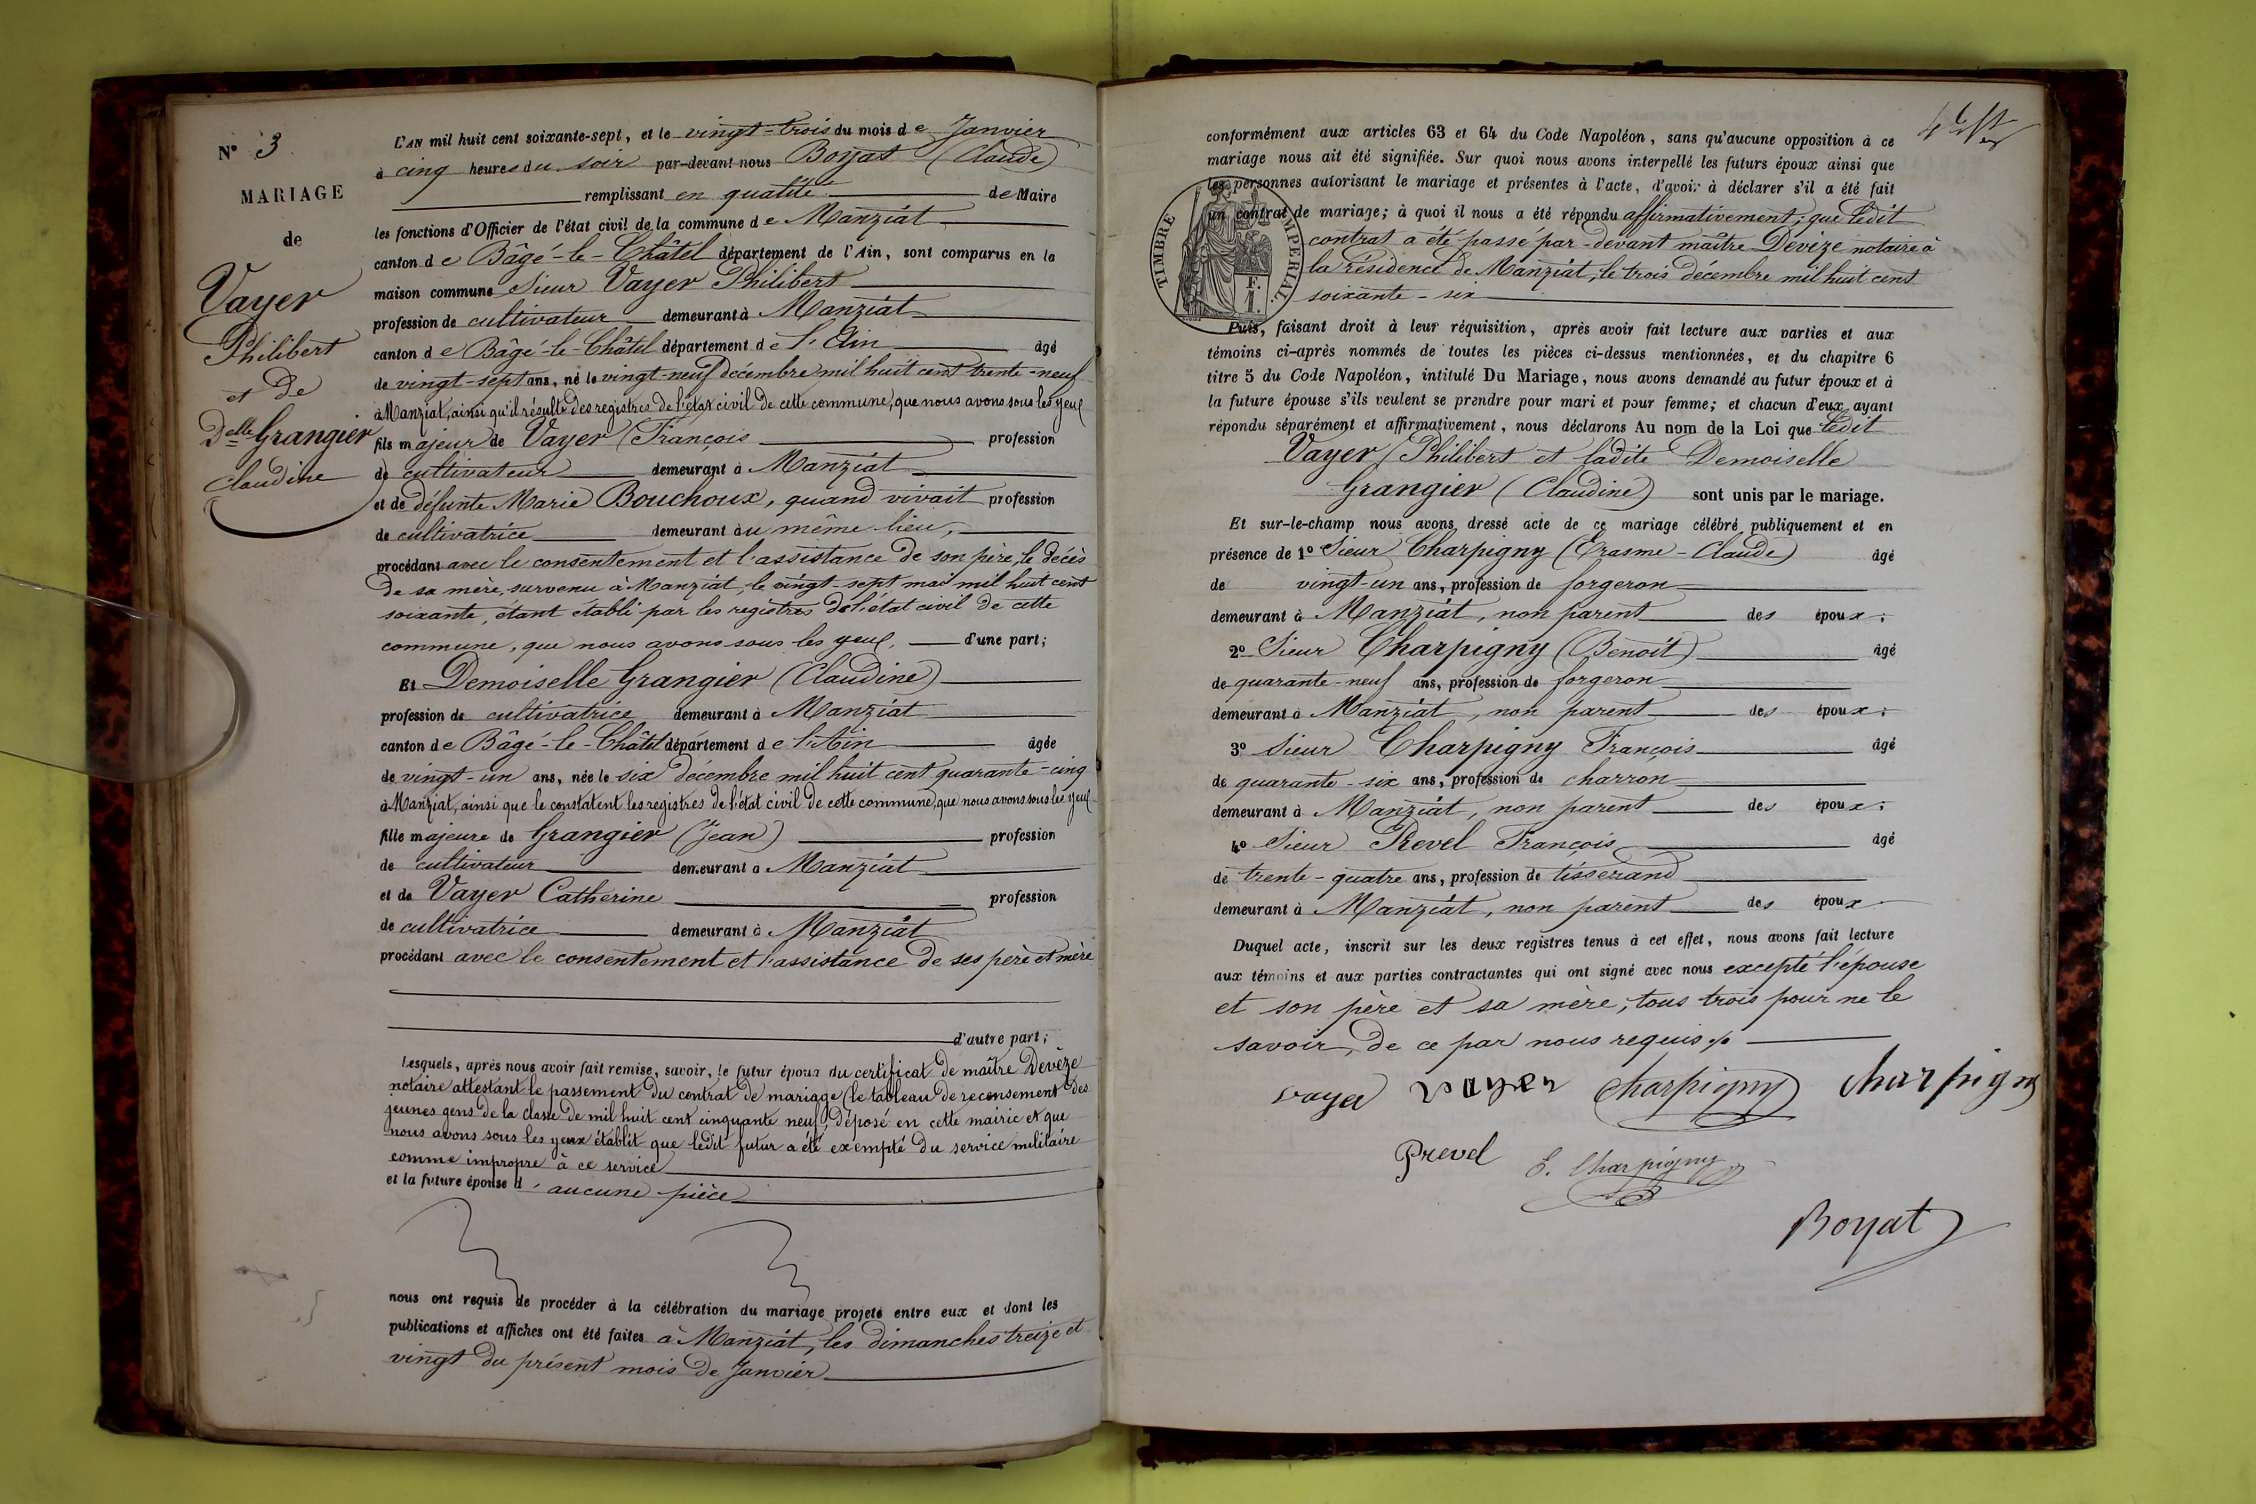 N° 3
MARIAGE
de
Vayer
Philibert
et de
Delle Grangier
Claudine
L'AN mil huit cent soixante-sept, et le vingt-trois du mois de Janvier
à cinq heures du soir par-devant nous Boyat (Claude)
remplissant en qualité de Maire
les fonctions d'Officier de l'état civil de la commune de Manziat
canton de Bâgé-le-Châtel département de l'Ain, sont comparus en la
maison commune Sieur Vayer Philibert
profession de cultivateur demeurant à Manziat
canton de Bâgé-le-Châtel département de l'Ain âgé
de vingt-sept ans, né le vingt-neuf décembre mil huit cent trente-neuf
à Manziat, ainsi qu'il résulte des registres de l'état civil de cette commune, que nous avons sous les yeux
fils majeur de Vayer (François) profession
de cultivateur demeurant à Manziat
et de défunte Marie Bouchoux, quand vivait profession
de cultivatrice demeurant au même lieu,
procédant avec le consentement et l'assistance de son père, le décès
de sa mère, survenu à Manziat, le vingt-sept mai mil huit cent
soixante, étant établi par les registres de l'état civil de cette
commune, que nous avons sous les yeux, d'une part;
Et Demoiselle Grangier (Claudine)
profession de cultivatrice demeurant à Manziat
canton de Bâgé-le-Châtel département de l'Ain âgée
de vingt-un ans, née le six décembre mil huit cent quarante-cinq
à Manziat, ainsi que le constatent les registres de l'état civil de cette commune, que nous avons sous les yeux
fille majeure de Grangier (Jean) profession
de cultivateur demeurant à Manziat
et de Vayer Catherine profession
de cultivatrice demeurant à Manziat
procédant avec le consentement et l'assistance de ses père et mère
d'autre part;
Lesquels, après nous avoir fait remise, savoir, le futur époux du certificat de maître Devèze
notaire attestant le passement du contrat de mariage (le tableau de recensement des
jeunes gens de la classe de mil huit cent cinquante neuf, déposé en cette mairie et que
nous avons sous les yeux établit que ledit futur a été exempté du service militaire
comme impropre à ce service
et la future épouse d'aucune pièce
nous ont requis de procéder à la célébration du mariage projeté entre eux et dont les
publications et affiches ont été faites à Manziat, les dimanches treize et
vingt du présent mois de Janvier
conformément aux articles 63 et 64 du Code Napoléon, sans qu'aucune opposition à ce
mariage nous ait été signifiée. Sur quoi nous avons interpellé les futurs époux ainsi que
les personnes autorisant le mariage et présentes à l'acte, d'avoir à déclarer s'il a été fait
un contrat de mariage; à quoi il nous a été répondu affirmativement; que ledit
contrat a été passé par-devant maître Devèze notaire à
la résidence de Manziat, le trois décembre mil huit cent
soixante-six
TIMBRE IMPERIAL.
F.
1.
Puis, faisant droit à leur réquisition, après avoir fait lecture aux parties et aux
témoins ci-après nommés de toutes les pièces ci-dessus mentionnées, et du chapitre 6
titre 5 du Code Napoléon, intitulé Du Mariage, nous avons demandé au futur époux et à
la future épouse s'ils veulent se prendre pour mari et pour femme; et chacun d'eux ayant
répondu séparément et affirmativement, nous déclarons Au nom de la Loi que ledit
Vayer (Philibert et ladite Demoiselle
Grangier (Claudine) sont unis par le mariage.
Et sur-le-champ nous avons dressé acte de ce mariage célébré publiquement et en
présence de 1° Sieur Charpigny (Erasme-Claude) âgé
de vingt-un ans, profession de forgeron
demeurant à Manziat, non parent des époux;
2° Sieur Charpigny (Benoît) âgé
de quarante-neuf ans, profession de forgeron
demeurant à Manziat, non parent des époux;
3° Sieur Charpigny François âgé
de quarante-six ans, profession de charron
demeurant à Manziat, non parent des époux;
4° Sieur Prevel François âgé
de trente-quatre ans, profession de tisserand
demeurant à Manziat, non parent des époux
Duquel acte, inscrit sur les deux registres tenus à cet effet, nous avons fait lecture
aux témoins et aux parties contractantes qui ont signé avec nous excepté l'épouse
et son père et sa mère, tous trois pour ne le
savoir, de ce par nous requis
vayer Charpigny Charpigny
Prevel E. Charpigny
Boyat